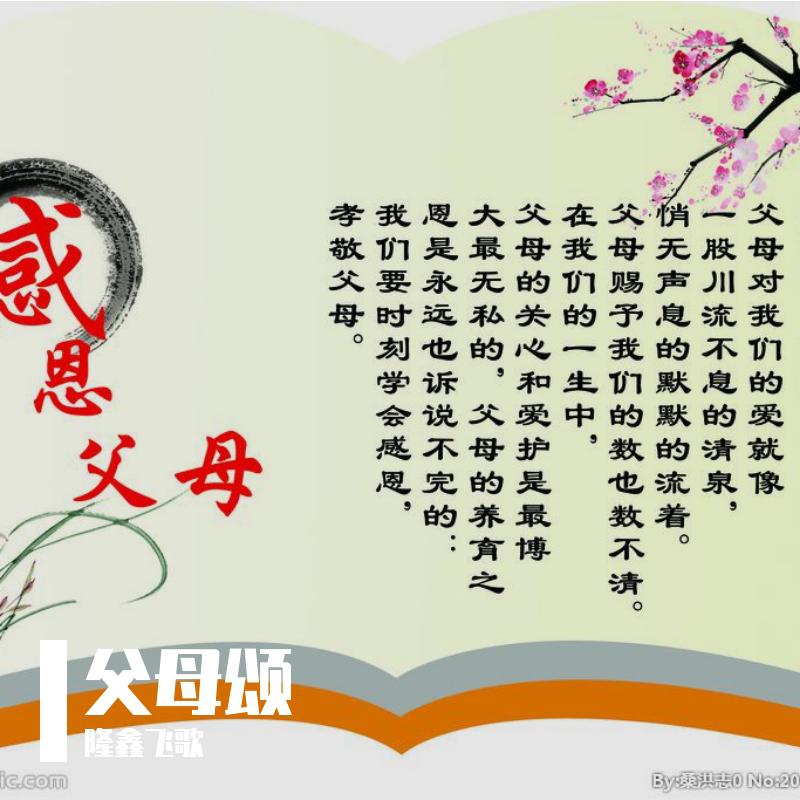 父母对我们的爱就像
一股川流不息的清泉，
悄无声息的默默的流着。
父母赐予我们的数也数不清。
在我们的一生中，
父母的关心和爱护是最博
大最无私的，父母的养育之
恩是永远也诉说不完的：
我们要时刻学会感恩，
孝敬父母。
感恩父母
父母颂
隆鑫飞歌
ic.com
By:桑洪志0 No:20